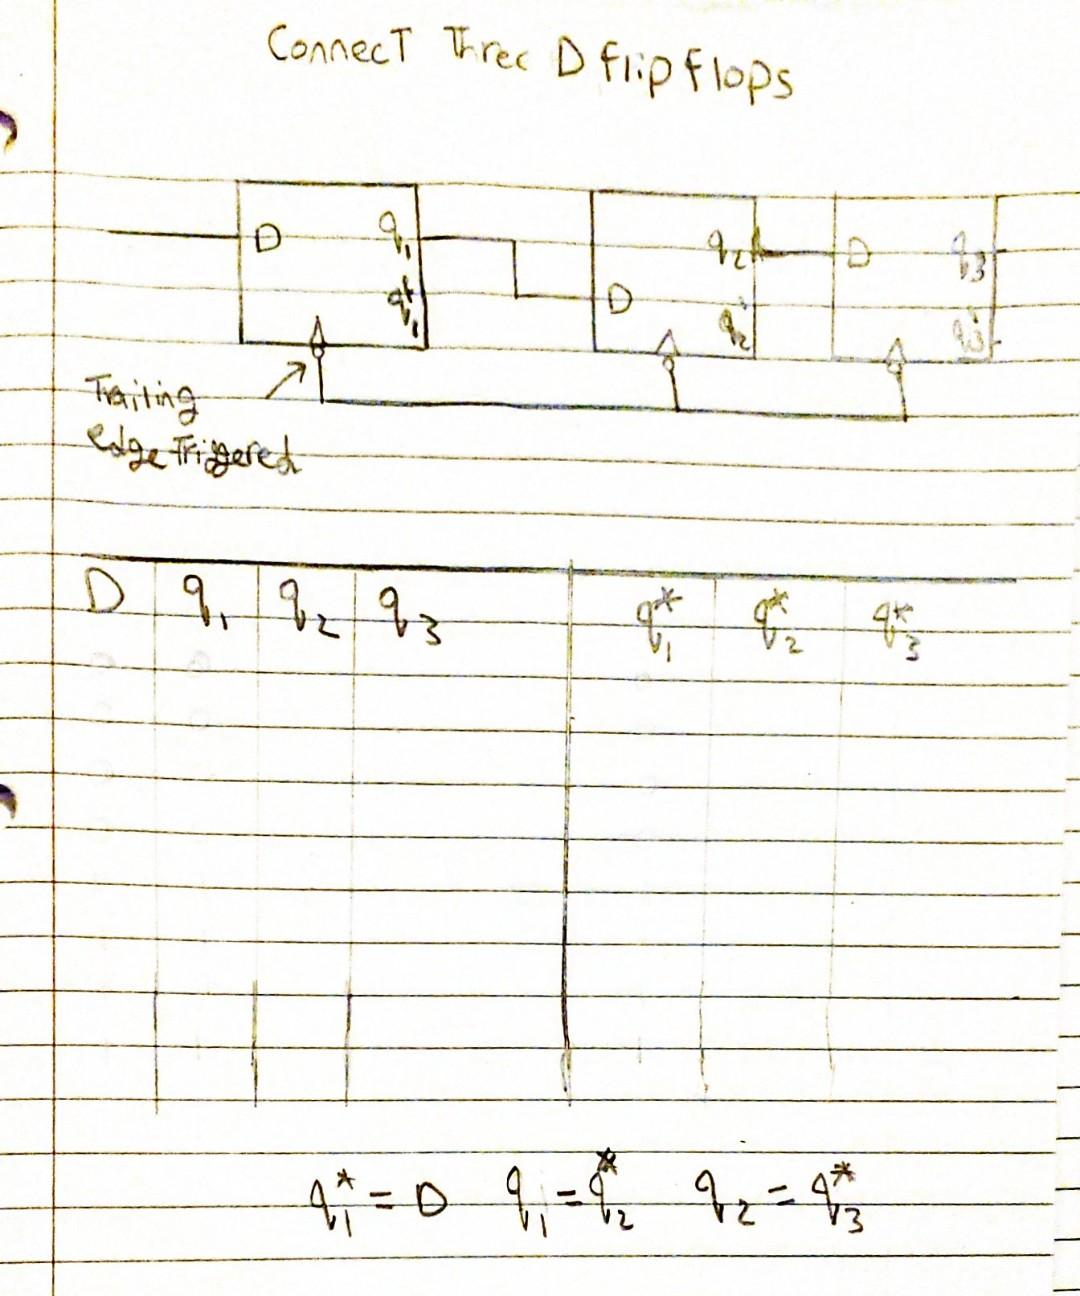 Connect Three D flip flops
D q₁ q₂ D q₃
q₁' D q₂' q₃'
Trailing
edge Triggered
D q₁ q₂ q₃ q₁* q₂* q₃*
q₁* = D q₁ = q₂* q₂ = q₃*